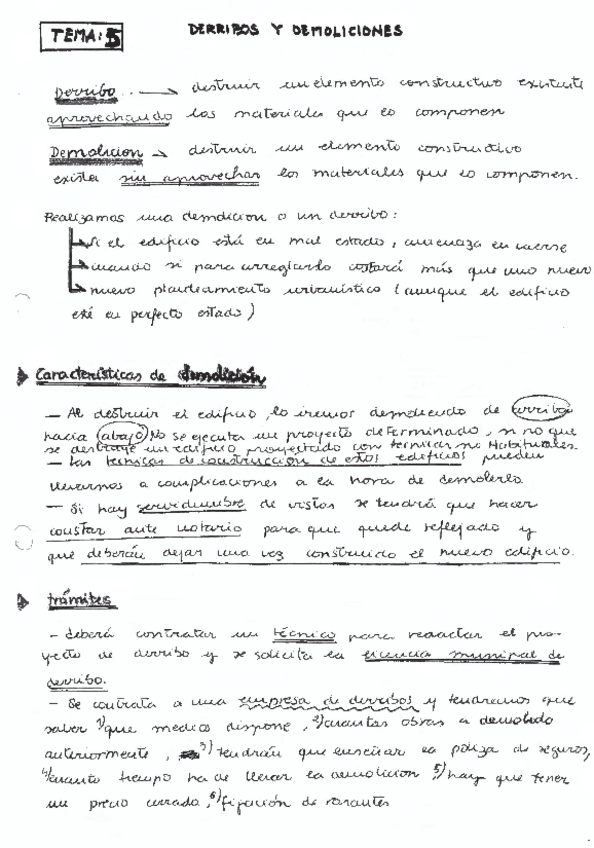 TEMA: 5
DERRIBOS Y DEMOLICIONES
Derribo → destruir un elemento constructivo existente
aprovechando los materiales que lo componen
Demolicion → destruir un elemento constructivo
exista sin aprovechar los materiales que lo componen.
Realizamos una demolicion o un derribo:
Si el edificio está en mal estado, amenaza en caerse
cuando si para arreglarlo costará más que uno nuevo
nuevo planteamiento urbanístico (aunque el edificio
esté en perfecto estado)
Características de demolición
- Al destruir el edificio, lo iremos demoliendo de arriba
hacia abajo. No se ejecuta un proyecto determinado, si no que
se destruye un edificio proyectado con tecnicas no Habituales.
- Las tecnicas de construccion de estos edificios pueden
llevarnos a complicaciones a la hora de demolerlo
- Si hay servidumbre de vistas se tendrá que hacer
constar ante notario para que quede reflejado y
que deberán dejar una vez construido el nuevo edificio.
trámites
- deberá contratar un técnico para redactar el pro-
yecto de derribo y se solicita la licencia municipal de
derribo.
- Se contrata a una empresa de derribos y tendremos que
saber 1) que medios dispone, 2) cuantas obras a demolido
anteriormente, 3) tendrán que enseñar la poliza de seguros,
4) cuanto tiempo ha de llevar la demolicion 5) hay que tener
un precio cerrado, 6) fijación de rasantes